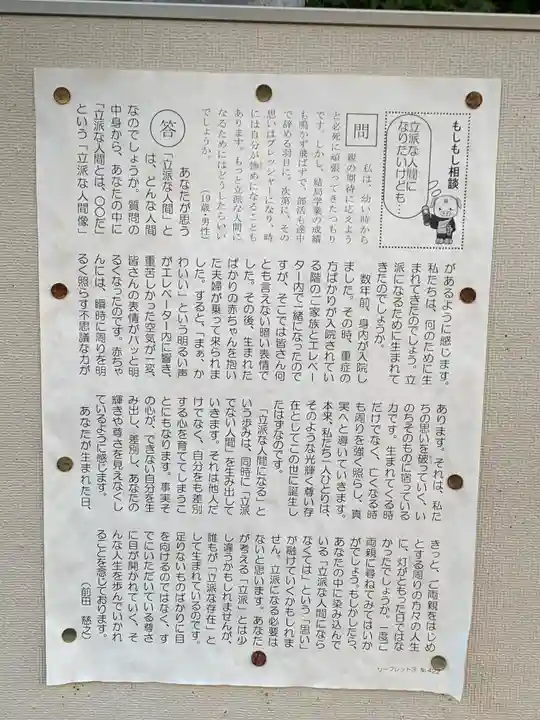 もしもし相談
立派な人間に
なりたいけども…
問
私は、幼い時から
親の期待に応えよう
と必死に頑張ってきたつもり
です。しかし、結局学業の成績
も鳴かず飛ばずで、部活も途中
で辞める羽目に。次第に、その
思いはプレッシャーになり、時
には自分が惨めになることも
あります。もっと立派な人間に
なるためにはどうしたらいい
でしょうか。
(19歳・男性)
答
あなたが思う
「立派な人間」と
は、どんな人間
なのでしょうか。質問の
中身から、あなたの中に
「立派な人間とは、〇〇だ」
という「立派な人間像」
があるように感じます。
私たちは、何のために生
まれてきたのでしょう。立
派になるために生まれて
きたのでしょうか。
数年前、身内が入院し
ました。その時、重症の
方ばかりが入院されてい
る階のご家族とエレベー
ター内で一緒になったので
すが、そこでは皆さん何
とも言えない暗い表情で
した。その後、生まれた
ばかりの赤ちゃんを抱い
た夫婦が乗って来られま
した。すると、「まぁ、か
わいい」という明るい声
がエレベーター内に響き、
重苦しかった空気が一変、
皆さんの表情がパッと明
るくなったのです。赤ちゃ
んには、瞬時に周りを明
るく照らす不思議な力が
あります。それは、私た
ちの思いを破っていく、い
のちそのものに宿っている
力です。生まれてくる時
だけでなく、亡くなる時
も周りを強く照らし、真
実へと導いていきます。
本来、私たち一人ひとりは、
そのような光輝く尊い存
在としてこの世に誕生し
たはずなのです。
「立派な人間になる」と
いう歩みは、同時に「立派
でない人間」を生み出して
いきます。それは他人だ
けでなく、自分をも差別
する心を育ててしまうこ
とにもなります。事実そ
の心が、できない自分を生
み出し、差別し、あなたの
輝きや尊さを見えなくし
ているように感じます。
あなたが生まれた日、
きっと、ご両親をはじめ
とする周りの方々の人生
に、灯がともった日ではな
かったでしょうか。一度ご
両親に尋ねてみてはいか
がでしょう。もしかしたら、
あなたの中に染み込んで
いる「立派な人間になら
なくては」という「思い」
が融けていくかもしれま
せん。立派になる必要は
ないと思います。あなた
が考える「立派」とは少
し違うかもしれませんが、
誰もが「立派な存在」と
して生まれているのです。
足りないものばかりに目
を向けるのではなく、す
でにいただいている尊さ
に目が開かれていく、そ
んな人生を歩んでいかれ
ることを念じております。
(前田 慈之)